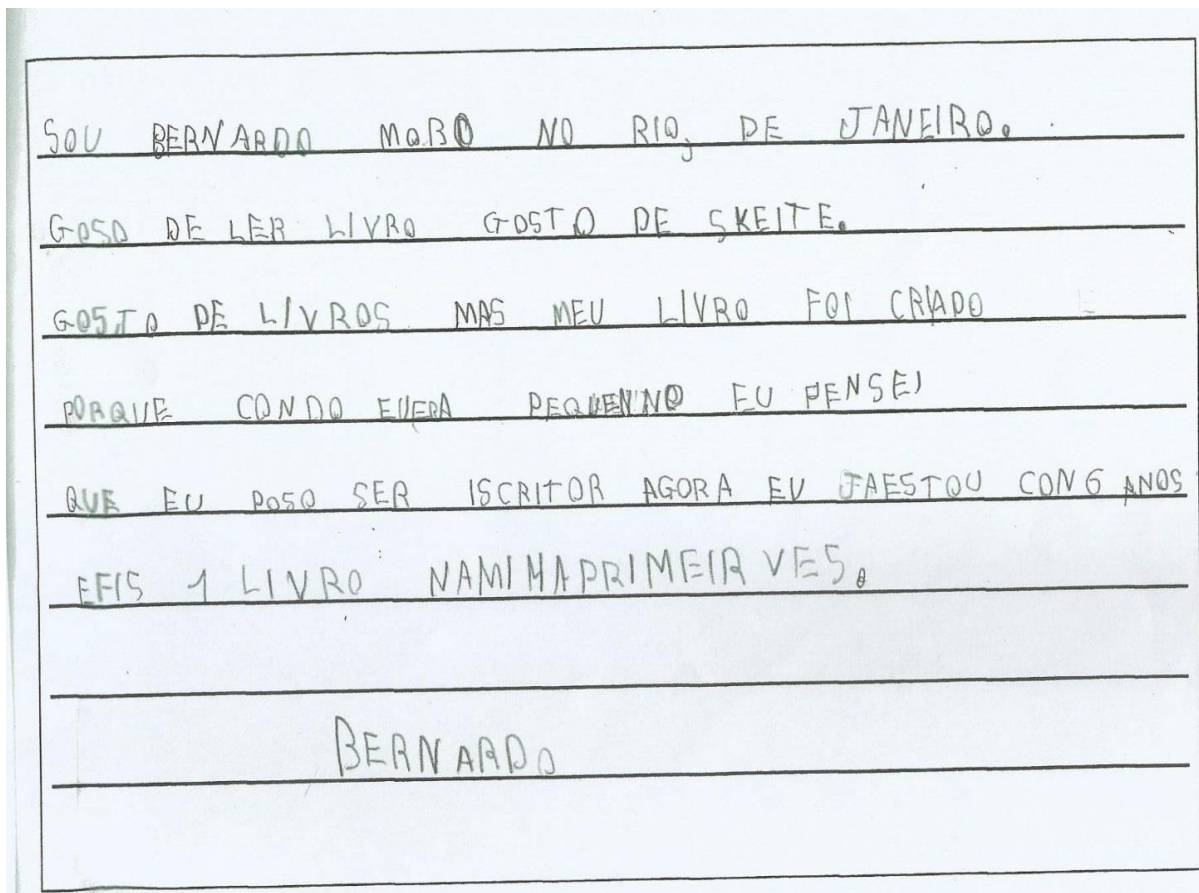 SOU BERNARDO MORO NO RIO, DE JANEIRO.
GOSO DE LER LIVRO GOSTO DE SKEITE.
GOSTO DE LIVROS MAS MEU LIVRO FOI CRIADO
PORQUE CONDO EUERA PEQUENNO EU PENSEI
QUE EU POSO SER ISCRITOR AGORA EU JAESTOU CON 6 ANOS
EFIS 1 LIVRO NAMINHAPRIMEIR VES.
BERNARDO